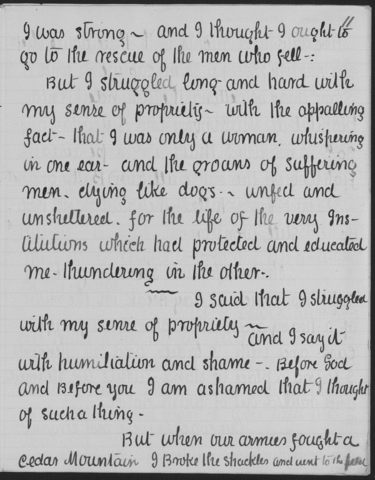 11
I was strong ~ and I thought I ought to
go to the rescue of the men who fell -:
But I struggled long and hard with
my sense of propriety - with the appalling
fact - that I was only a woman, whispering
in one ear - and the groans of suffering
men, dying like dogs - unfed and
unsheltered, for the life of the very Ins-
titutions which had protected and educated
me - thundering in the other -.
I said that I struggled
with my sense of propriety ~
and I say it
with humiliation and shame -. Before God
and Before you I am ashamed that I thought
of such a thing -
But when our armies fought a
Cedar Mountain I Broke the shackles and went to the field